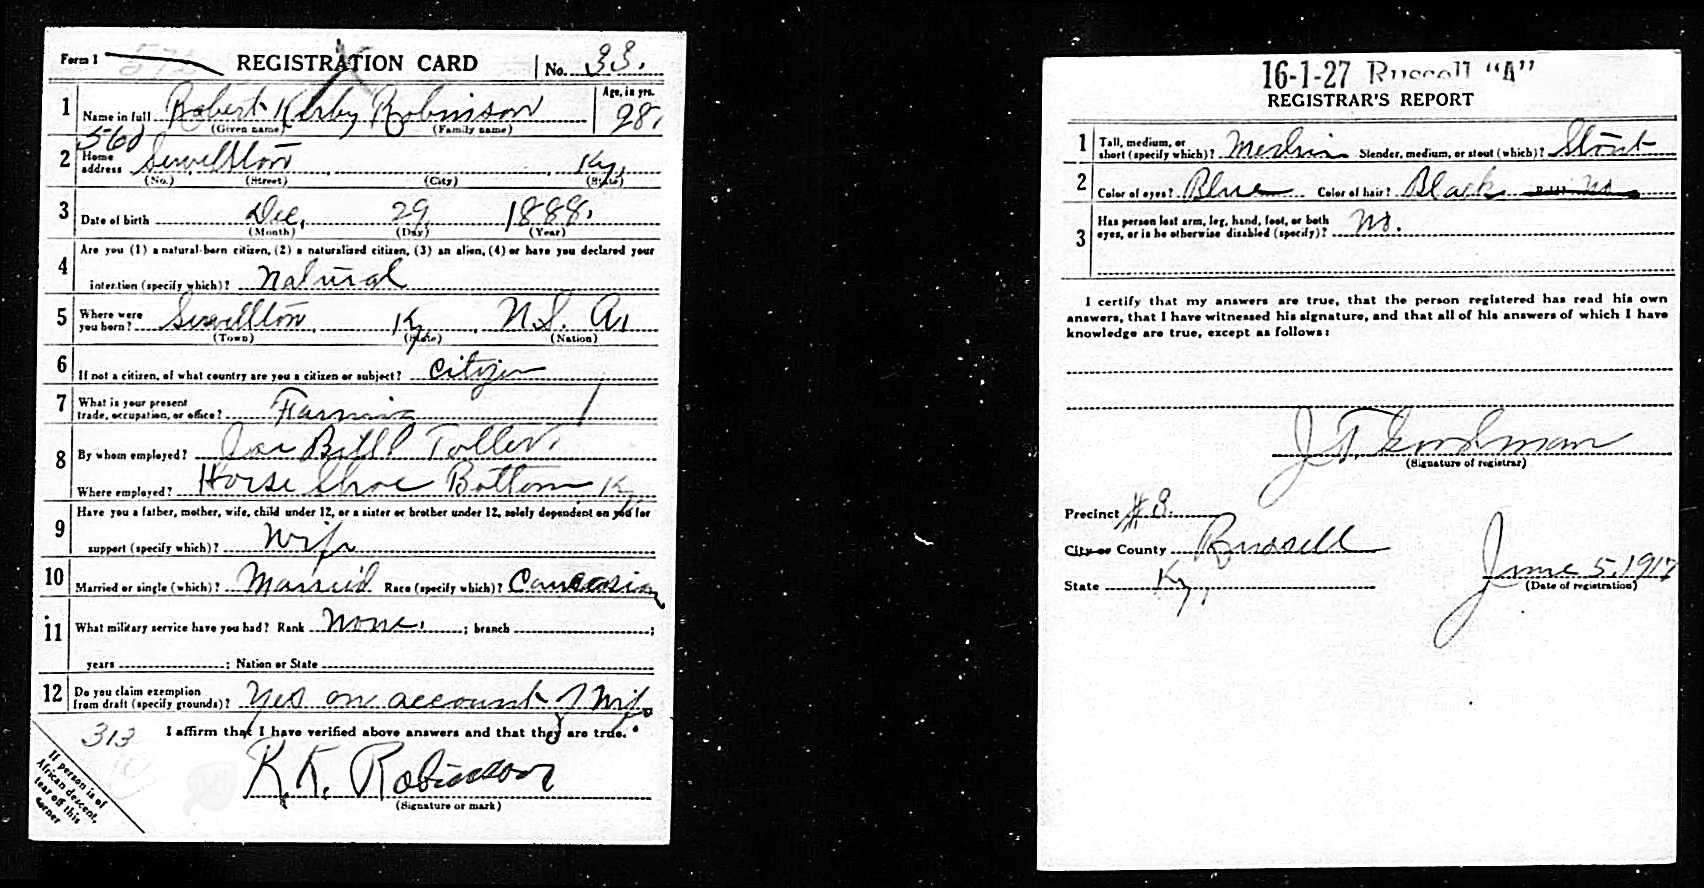 Form 1 REGISTRATION CARD No. 33.
1 Name in full Robert Kirby Robinson Age, in yrs. 28.
(Given name) (Family name)
560
2 Home address Sewellton, Ky.
(No.) (Street) (City) (State)
3 Date of birth Dec. 29 1888.
(Month) (Day) (Year)
4 Are you (1) a natural-born citizen, (2) a naturalized citizen, (3) an alien, (4) or have you declared your
intention (specify which)? Natural
5 Where were you born? Sewellton, Ky, U.S. A.
(Town) (State) (Nation)
6 If not a citizen, of what country are you a citizen or subject? Citizen
7 What is your present trade, occupation, or office? Farming
8 By whom employed? Bill
Where employed? Horse Shoe Bottom, Ky.
9 Have you a father, mother, wife, child under 12, or a sister or brother under 12, solely dependent on you for
support (specify which)? Wife
10 Married or single (which)? Married Race (specify which)? Caucasian
11 What military service have you had? Rank None. ; branch ;
years ; Nation or State
12 Do you claim exemption from draft (specify grounds)? Yes on account of Wife
I affirm that I have verified above answers and that they are true.
313
R.K. Robinson
(Signature or mark)
If person is of
African descent,
tear off this
corner
16-1-27 Russell "A"
REGISTRAR'S REPORT
1 Tall, medium, or short (specify which)? Medium Slender, medium, or stout (which)? Stout
2 Color of eyes? Blue Color of hair? Black Bald? No
3 Has person lost arm, leg, hand, foot, or both
eyes, or is he otherwise disabled (specify)? No.
I certify that my answers are true, that the person registered has read his own
answers, that I have witnessed his signature, and that all of his answers of which I have
knowledge are true, except as follows:
(Signature of registrar)
Precinct #8.
City or County Russell
State Ky, June 5, 1917
(Date of registration)